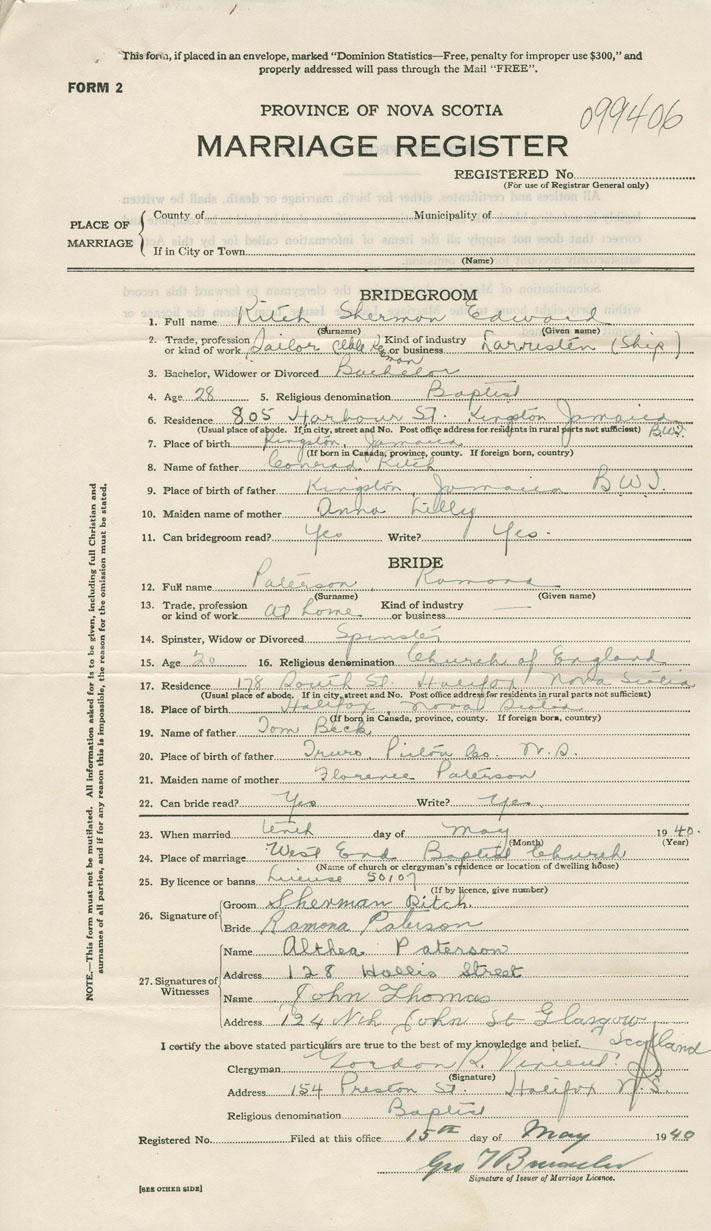 This form, if placed in an envelope, marked "Dominion Statistics—Free, penalty for improper use $300," and
properly addressed will pass through the Mail "FREE".
FORM 2
PROVINCE OF NOVA SCOTIA
099406
MARRIAGE REGISTER
REGISTERED No.
(For use of Registrar General only)
PLACE OF MARRIAGE
County of Municipality of
If in City or Town
(Name)
BRIDEGROOM
1. Full name Ritch Sherman Edward
(Surname) (Given name)
2. Trade, profession or kind of work Sailor Kind of industry or business (Ship)
3. Bachelor, Widower or Divorced Bachelor
4. Age 28 5. Religious denomination Baptist
6. Residence 805 Harbour St. Kingston Jamaica B.W.I.
(Usual place of abode. If in city, street and No. Post office address for residents in rural parts not sufficient)
7. Place of birth Kingston, Jamaica
(If born in Canada, province, county. If foreign born, country)
8. Name of father Conrad Ritch
9. Place of birth of father Kingston, Jamaica B.W.I.
10. Maiden name of mother Anna Lilly
11. Can bridegroom read? Yes Write? Yes.
BRIDE
12. Full name Paterson, Ramona
(Surname) (Given name)
13. Trade, profession or kind of work at home Kind of industry or business —
14. Spinster, Widow or Divorced Spinster
15. Age 20 16. Religious denomination Church of England
17. Residence 178 South St. Halifax Nova Scotia
(Usual place of abode. If in city, street and No. Post office address for residents in rural parts not sufficient)
18. Place of birth Halifax Nova Scotia
(If born in Canada, province, county. If foreign born, country)
19. Name of father Tom Beck
20. Place of birth of father Truro, Pictou Co. N.S.
21. Maiden name of mother Florence Paterson
22. Can bride read? Yes Write? Yes.
23. When married tenth day of May 1940.
(Month) (Year)
24. Place of marriage West End Baptist Church
(Name of church or clergyman's residence or location of dwelling house)
25. By licence or banns License 50107
(If by licence, give number)
26. Signature of
Groom Sherman Ritch
Bride Ramona Paterson
27. Signatures of Witnesses
Name Althea Paterson
Address 128 Hollis Street
Name John Thomas
Address 124 Nth John St Glasgow Scotland
I certify the above stated particulars are true to the best of my knowledge and belief.
Clergyman Gordon
(Signature)
Address 154 Preston St. Halifax N.S.
Religious denomination Baptist
Registered No. Filed at this office 15th day of May 1940
Geo
Signature of Issuer of Marriage Licence.
[SEE OTHER SIDE]
NOTE.—This form must not be mutilated. All information asked for is to be given, including full Christian and
surnames of all parties, and if for any reason this is impossible, the reason for the omission must be stated.